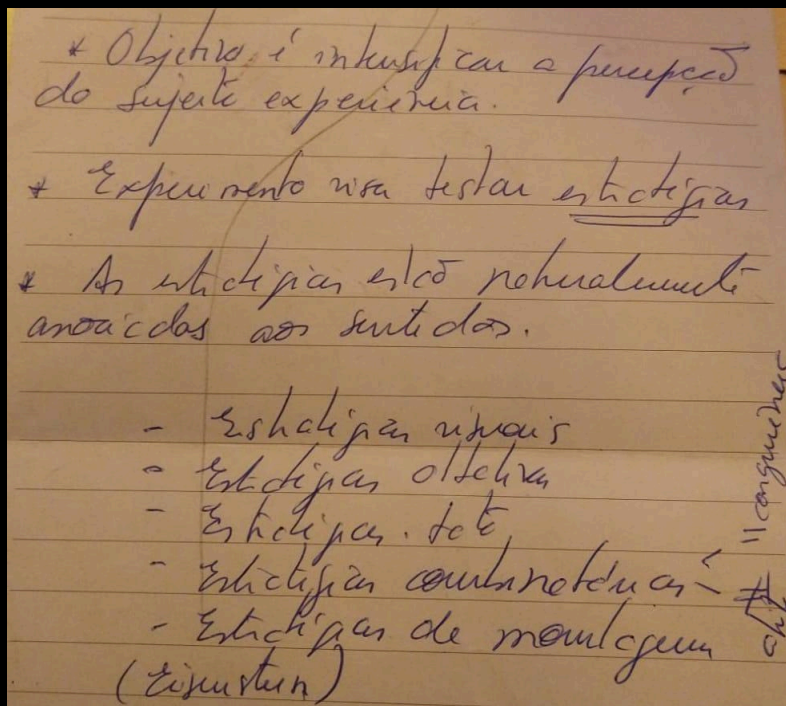 * Objetivo é intensificar a percepção
do sujeito experiência.
* Experimento visa testar estratégias
* As estratégias estão naturalmente
associadas aos sentidos.
- Estratégias visuais
- Estratégias olfativas
- Estratégias tato
- Estratégias combinatórias -
- Estratégias de montagem
(Eisenstein)